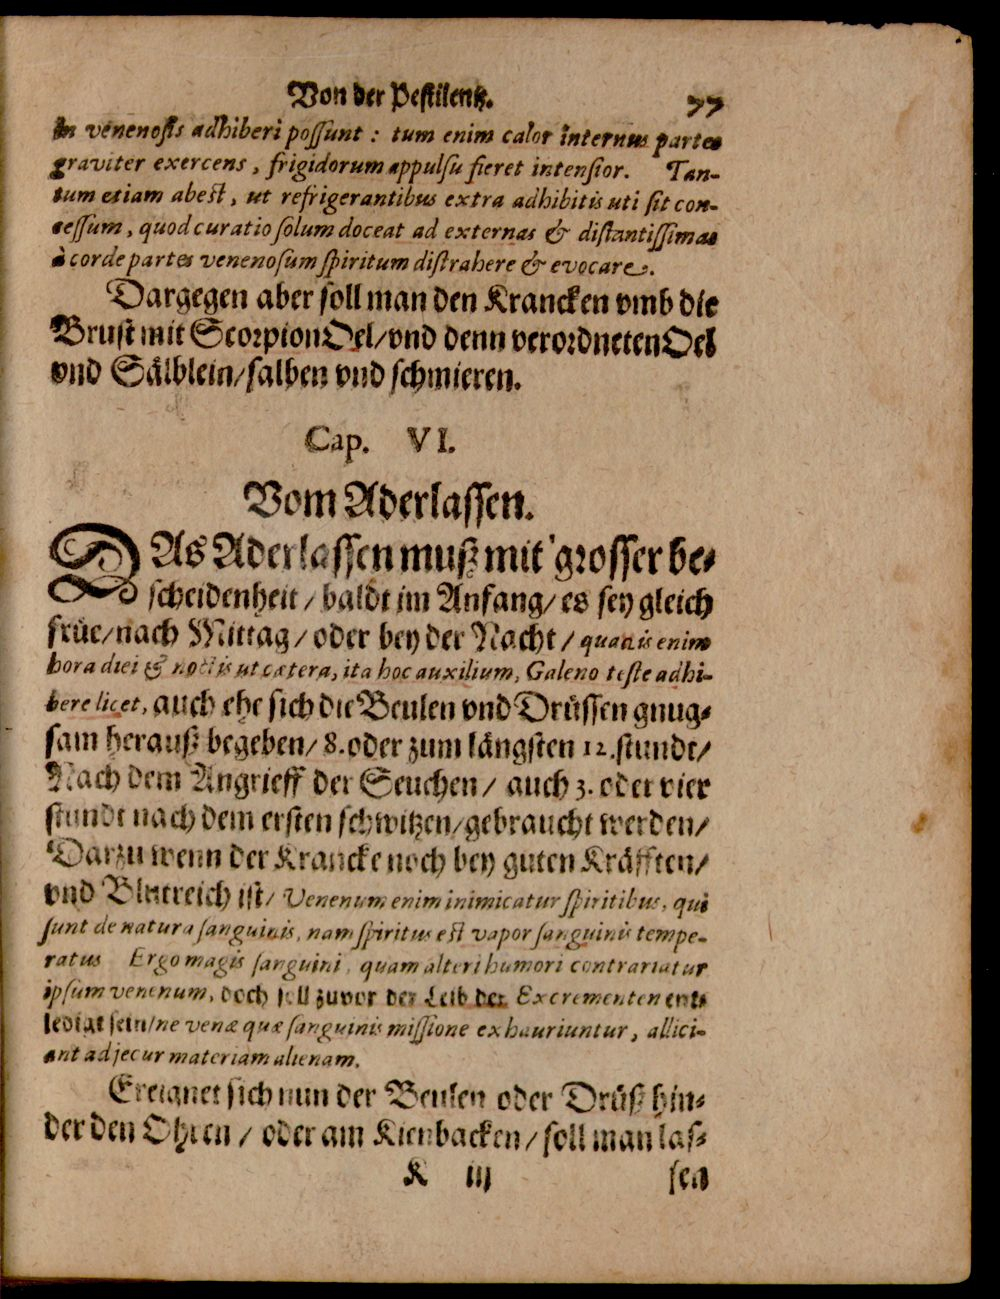 Von der Pestilentz. 77
in venenosis adhiberi possunt : tum enim calor internus partes
graviter exercens, frigidorum appulsu fieret intensior. Tan-
tum etiam abest, ut refrigerantibus extra adhibitis uti sit con-
cessum, quod curatio solum doceat ad externas & distantissimas
à corde partes venenosum spiritum distrahere & evocare.
Dargegen aber soll man den Krancken vmb die
Brust mit Scorpion Oel/ vnd denn verordneten Oel
vnd Sälblein/ salben vnd schmieren.
Cap. VI.
Vom Aderlassen.
DAs Aderlassen muß mit grosser be-
scheidenheit / baldt im Anfang/ es sey gleich
früe/ nach Mittag / oder bey der Nacht / quavis enim
hora diei & noctis ut cætera, ita hoc auxilium, Galeno teste adhi-
bere licet, auch ehe sich die Beulen vnd Drüssen gnug-
sam herauß begeben/ 8. oder zum längsten 12. stundt/
Nach dem Angrieff der Seuchen / auch 3. oder vier
stundt nach dem ersten schwitzen/ gebraucht werden/
Darzu wenn der Krancke noch bey guten Kräfften/
vnd Blutreich ist/ Venenum enim inimicatur spiritibus, qui
sunt de natura sanguinis, nam spiritus est vapor sanguinis tempe-
ratus Ergo magis sanguini, quam alteri humori contrariatur
ipsum venenum, doch soll zuvor der Leib der Excrementen ent-
lediget sein/ ne venæ quæ sanguinis missione exhauriuntur, allici-
ant ad jecur materiam alienam.
Ereignet sich nun der Beulen oder Drüß hin-
der den Ohren / oder am Kienbacken / soll man las-
K iij sen